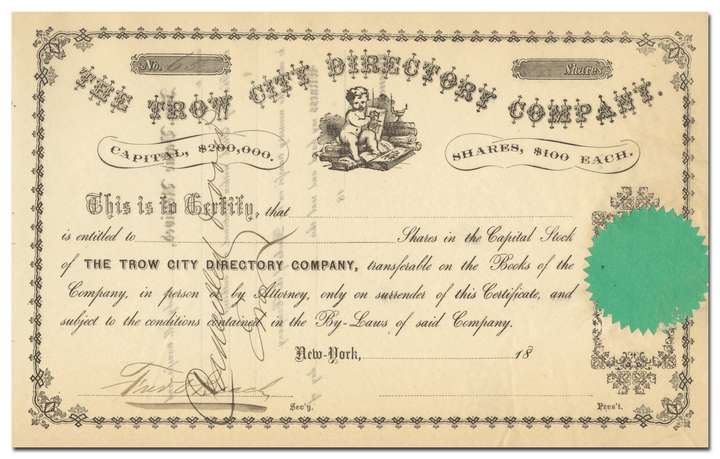 No.
Shares
THE TROW CITY DIRECTORY COMPANY.
CAPITAL, $200,000.
SHARES, $100 EACH.
This is to Certify, that
is entitled to Shares in the Capital Stock
of THE TROW CITY DIRECTORY COMPANY, transferable on the Books of the
Company, in person or by Attorney, only on surrender of this Certificate, and
subject to the conditions contained in the By-Laws of said Company.
New-York, 18
Sec'y.
Pres't.